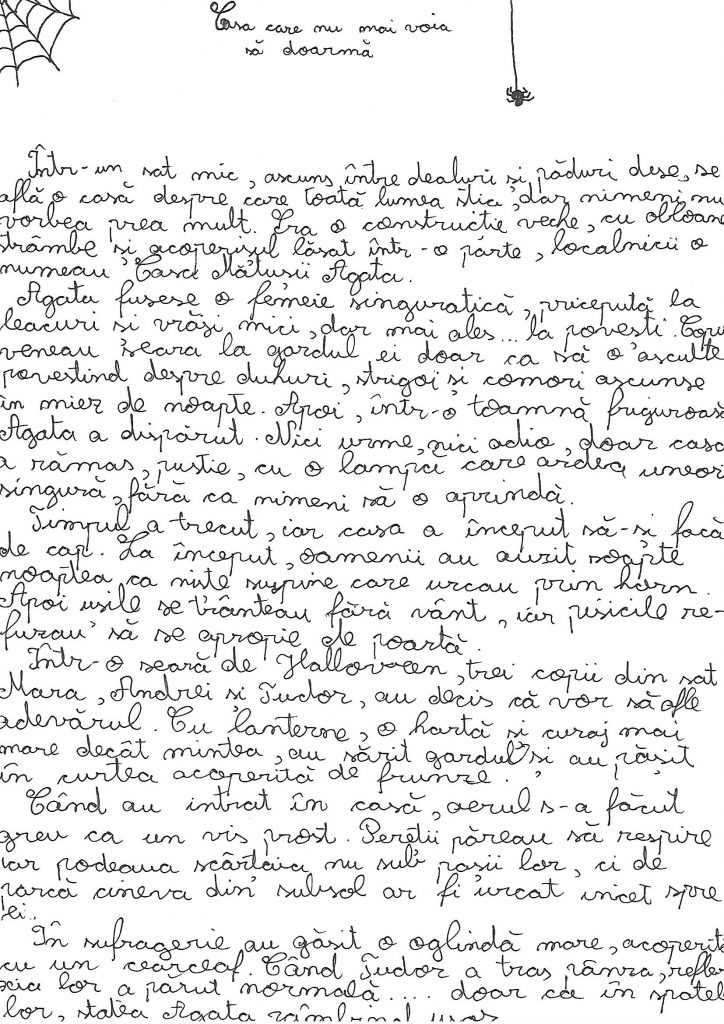 Casa care nu mai voia
să doarmă
Într-un sat mic, ascuns între dealuri și păduri dese, se
află o casă despre care toată lumea știa, dar nimeni nu
vorbea prea mult. Era o construcție veche, cu obloane
strâmbe și acoperișul lăsat într-o parte, localnicii o
numeau Casa Mătușii Agata.
Agata fusese o femeie singuratică, pricepută la
leacuri și vrăji mici, dar mai ales... la povești. Copii
veneau seara la gardul ei doar ca să o asculte
povestind despre duhuri, strigoi și comori ascunse
în miez de noapte. Apoi, într-o toamnă friguroas
Agata a dispărut. Nici urme, nici adio, doar casa
a rămas, pustie, cu o lampă care ardea uneori
singură, fără ca nimeni să o aprindă.
Timpul a trecut, iar casa a început să-și facă
de cap. La început, oamenii au auzit șoapte
noaptea ca niște suspine care urcau prin horn.
Apoi ușile se trânteau fără vânt, iar pisicile re-
fuzau să se apropie de poartă.
Într-o seară de Halloween, trei copii din sat
Mara, Andrei și Tudor, au decis că vor să afle
adevărul. Cu lanterne, o hartă și curaj mai
mare decât mintea, au sărit gardul și au pășit
în curtea acoperită de frunze.
Când au intrat în casă, aerul s-a făcut
greu ca un vis prost. Pereții păreau să respire
iar podeaua scârțâia nu sub pașii lor, ci de
parcă cineva din subsol ar fi urcat încet spre
ei.
În sufragerie au găsit o oglindă mare, acoperită
cu un cearceaf. Când Tudor a tras pânza, refle-
xia lor a părut normală.... doar că în spatel
lor, stătea Agata zâmbind ușor